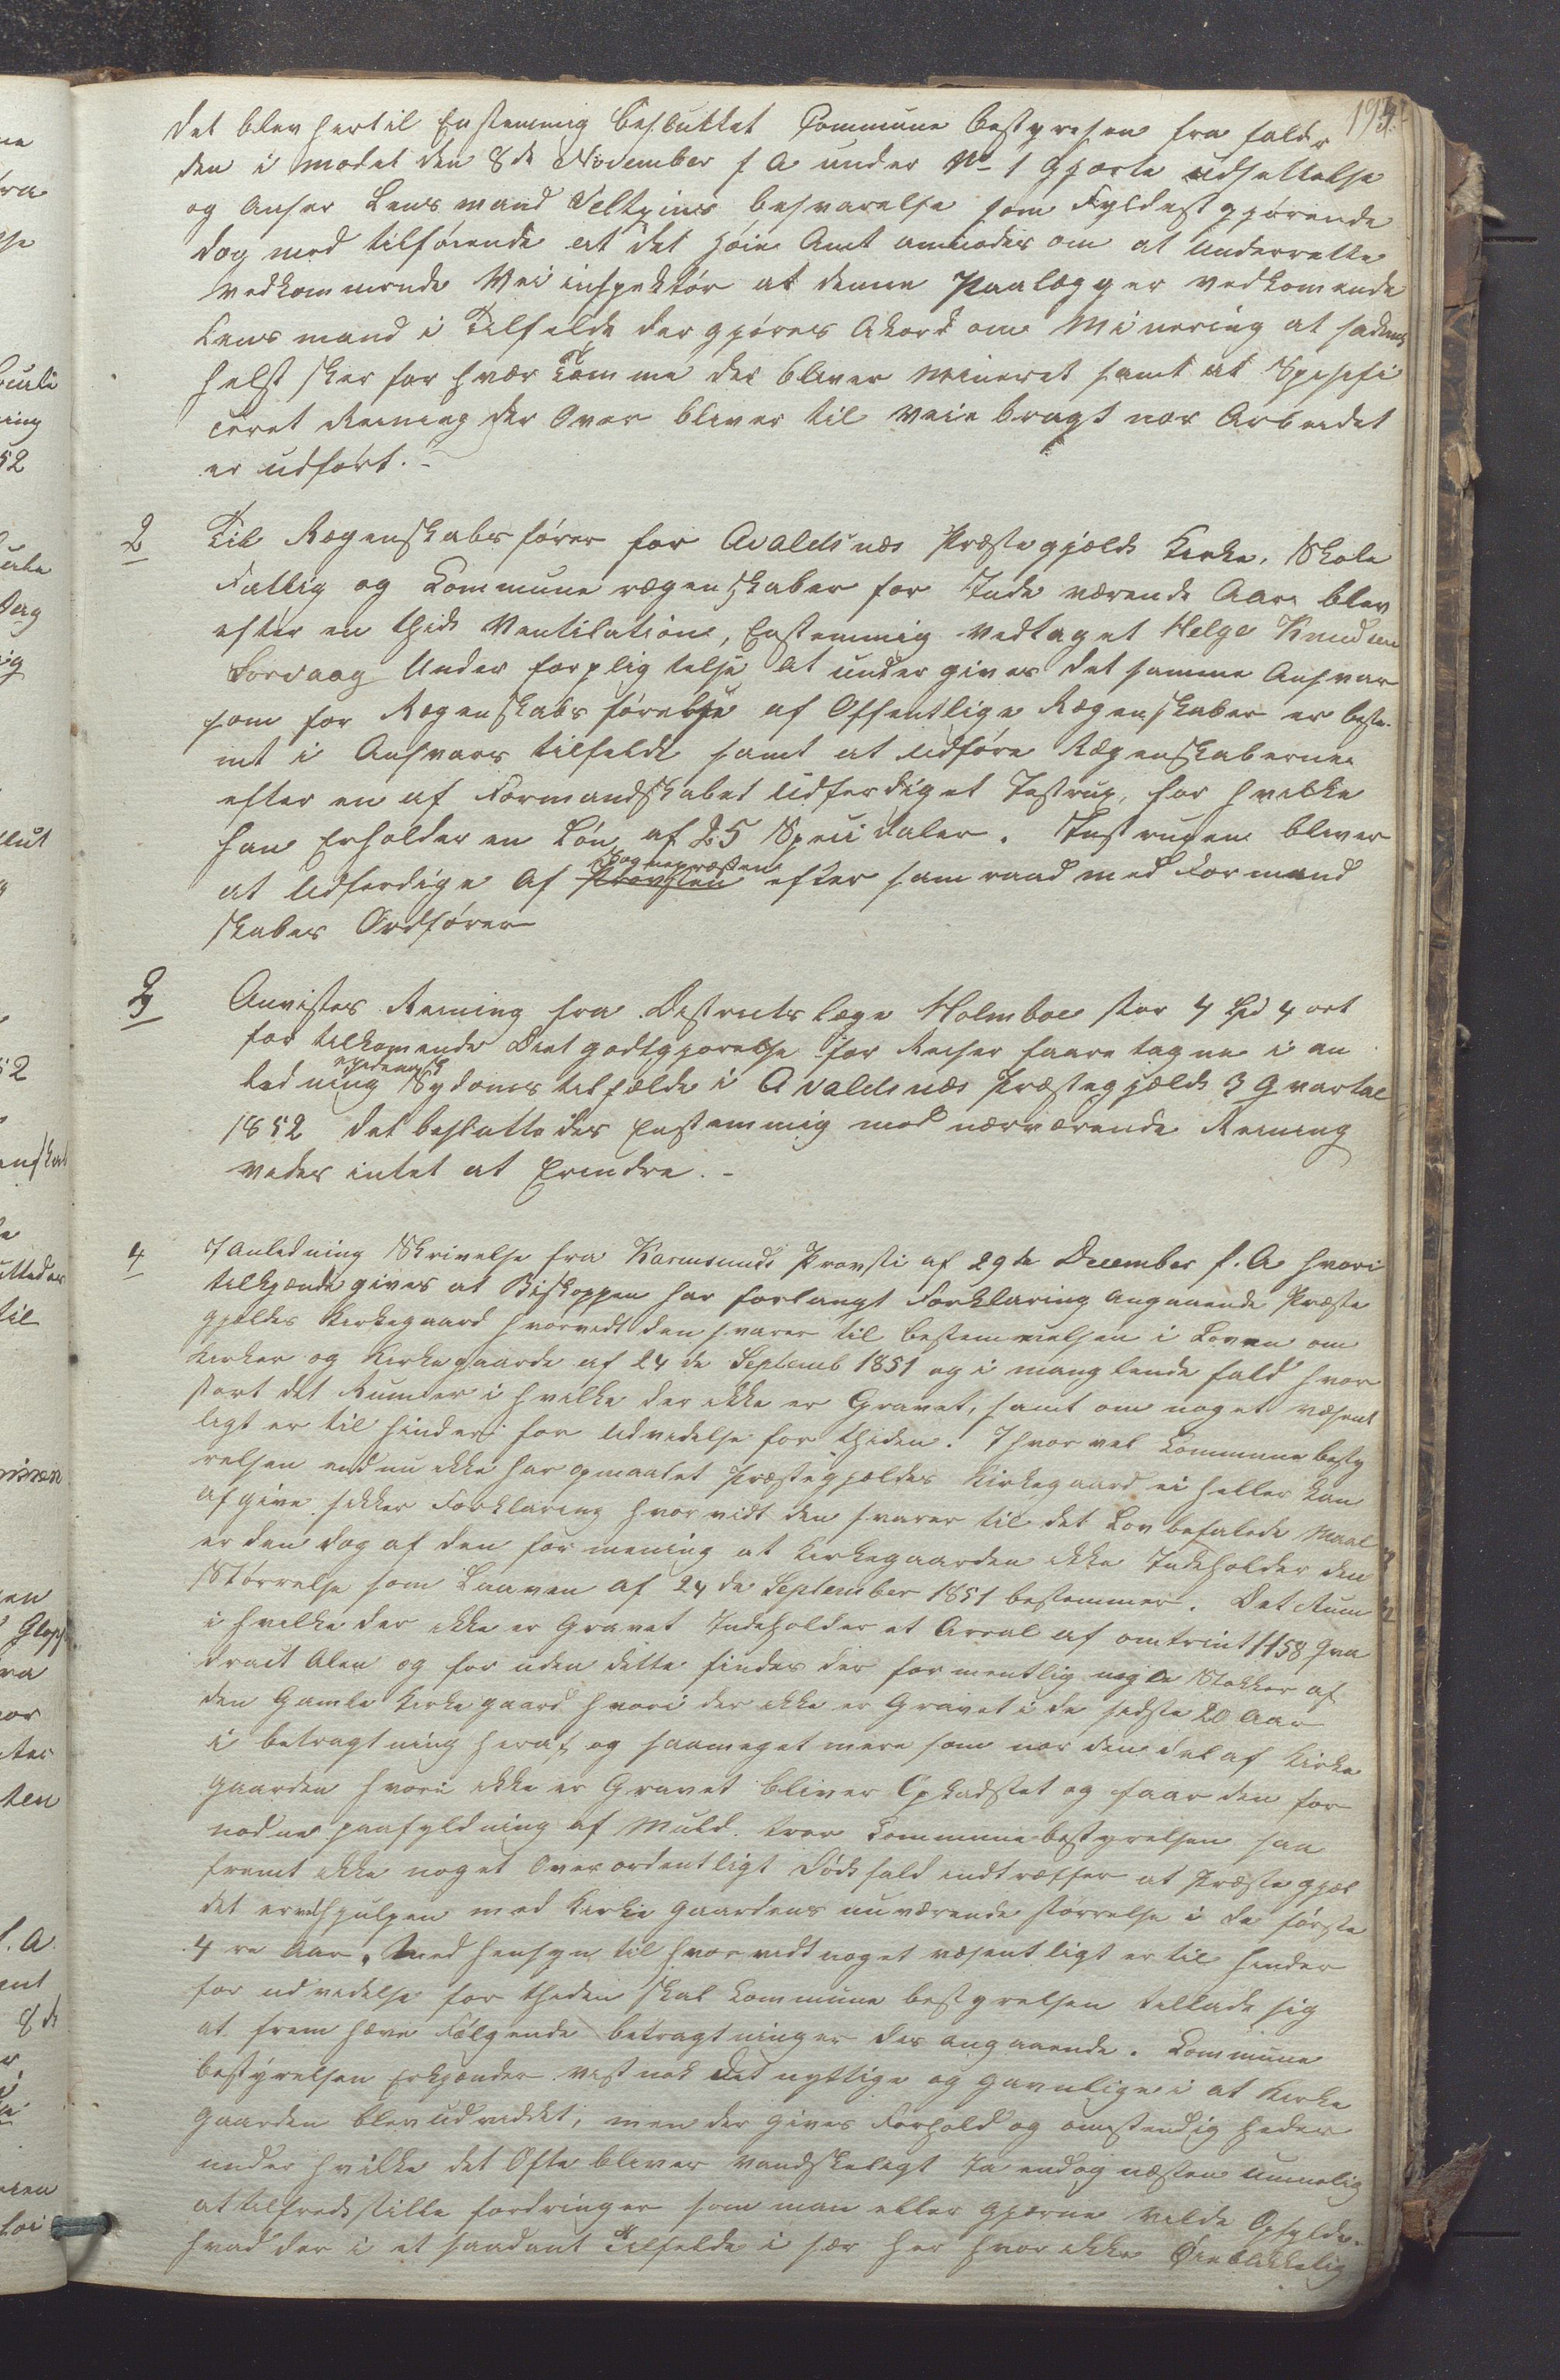 194
det blev hertil Enstemmig besluttet Commune bestyrelsen fra falder
den i modet den 8de November f A under No 1 gjorte udsettelse
og anser Lensmand Veltzins besvarelse som Fyldestgjørende
dog med tilføiende at det høie Amt anmodes om at underrette
vedkommende Vei inspektør at denne Paalægger vedkomende
Lens mand i Tilfelde der gjøres Akord om Minering at sadan
helst sker for hvær Tomme der bliver Mineret samt at Spesifi
ceret Reining der Over bliver til veie bragt nar Arbeidet
er udført. -
2 Til Regenskabs fører for Avaldsnes Præstegjelds Kirke, Skole
Fattig og Commune regenskaber for Inde værende Aar blev
efter en thids Ventilation, Enstemmig vedtaget Helge Knudsen
Sorvaag Under forpligtelse at under gives det samme Ansvar
som for Regenskabs førelse af Offentlige Regenskaber er beste
mt i Ansvars tilfelde samt at udføre Regenskaberne
efter en af Formandskabet Udferdiget Instrux, for hvilke
han Erholder en Løn af 25 Speci daler. Instruxen bliver
at udferdige af Provsten Sognepræsten efter sam raad med Formand
skabes Ordfører
3 Anvistes Reining fra Destricts læge Holmboe stor 4 Spd 4 ort
for tilkomende Diet godtgjorelse for Reiser faare tagne i an
ledning epidemisk Sydoms tilfælde i Avaldsnes Præstegjelds 3 Qvartal
1852 det besluttedes Enstemmig mod nærværende Reining
vides intet at Erindre. -
4 I Anledning Skrivelse fra Karmsunds Provsti af 29de December f. A hvori
tilkjende gives at Biskoppen har forlangt Forklaring angaaende Præste
gjeldes Kirkegaard hvorvidt den svarer til bestemmelsen i Loven om
Kirker og Kirkegaarde af 24de Septemb 1851 og i manglende fald hvor
stort det Rum er i hvilke der ikke er Gravet, samt om noget væsent
ligt er til hinder for Udvidelse for thiden. I hvor vel Commune besty
relsen endnu ikke har opmaalet Præstegjeldes Kirkegaard ei heller kan
afgive sikker Forklaring hvor vidt den svarer til det Lov befalede Maal
er den dog af den for mening at Kirkegaarden ikke Indeholder den
Størrelse som Laaven af 24de September 1851 bestemmer. Det Rum
i hvilke der ikke er Gravet Indeholder et Areal af omtrint 1158 Qva
drait Alen og for uden dette findes der formentlig nogle Stokker af
den Gamle Kirke gaard hvori der ikke er Gravet i de sidste 20 Aar
i betragtning heraf og saameget mere som nar den del af Kirke
gaarden hvori ikke er Gravet bliver Opkastet og faar den for
nødne paafyldning af Muld. tror Commune bestyrelsen saa
fremt ikke noget Over ordentligt Døds fald indtræffer at Præste gjel
det er vel hjulpen med Kirke gaardens nuværende størrelse i de første
4 re Aar. Med Hensyn til hvor vidt noget væsentligt er til hinder
for udvidelse for theden skal Commune bestyrelsen tillade sig
at frem hæve Følgende betragtninger der angaaende. Commune
bestyrelsen Erkjender vist nok det nyttige og gavnlige i at Kirke
gaarden blev udviddet, men der gives Forhold og omstendig heder
under hvilke det Ofte bliver Vandskeligt ja endog næsten umuelig
at tilfredsstille fordringer som man ellers gjerne vilde Opfylde.
hvad der i et saadant Tilfelde i sær her hvor ikke Øieblikkelig